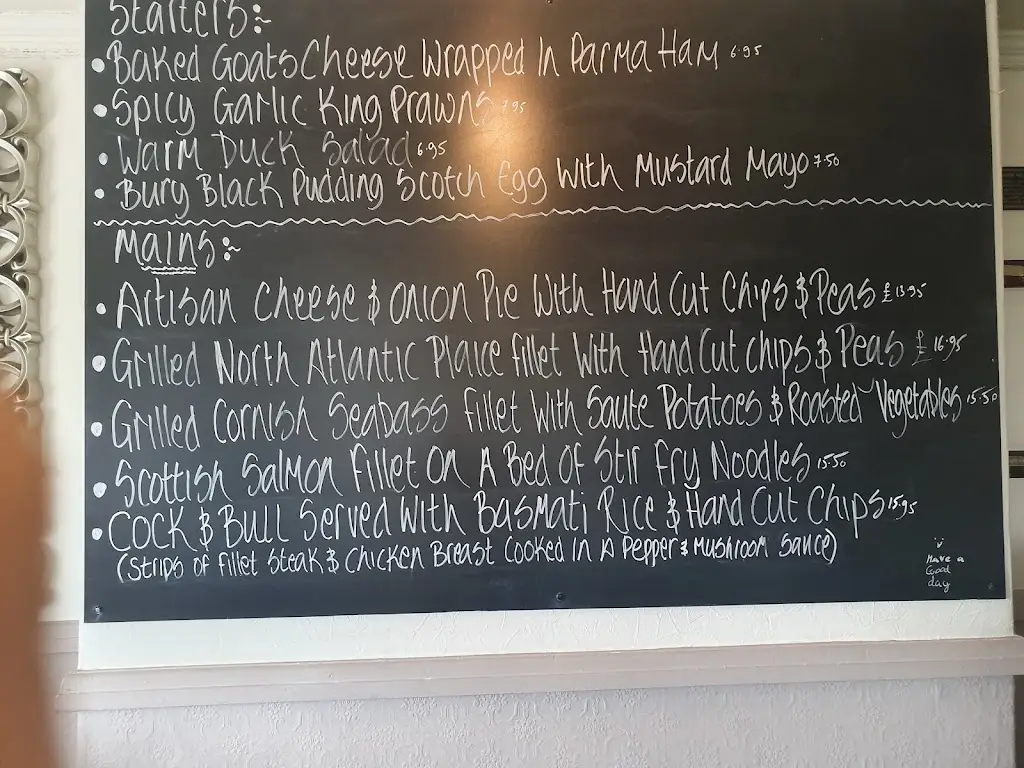 Starters:~
• Baked Goats Cheese Wrapped In Parma Ham 6.95
• Spicy Garlic King Prawns 7.95
• Warm Duck Salad 6.95
• Bury Black Pudding Scotch Egg With Mustard Mayo 7.50
Mains:~
• Artisan Cheese & Onion Pie With Hand Cut Chips & Peas £13.95
• Grilled North Atlantic Plaice fillet With Hand Cut chips & Peas £16.95
• Grilled Cornish Seabass fillet With Saute Potatoes & Roasted Vegetables 15.50
• Scottish Salmon Fillet On A Bed Of Stir Fry Noodles 15.50
• Cock & Bull Served With Basmati Rice & Hand Cut Chips 15.95
(Strips of fillet Steak & Chicken Breast Cooked In A Pepper & Mushroom Sauce)
Have a
Good
day